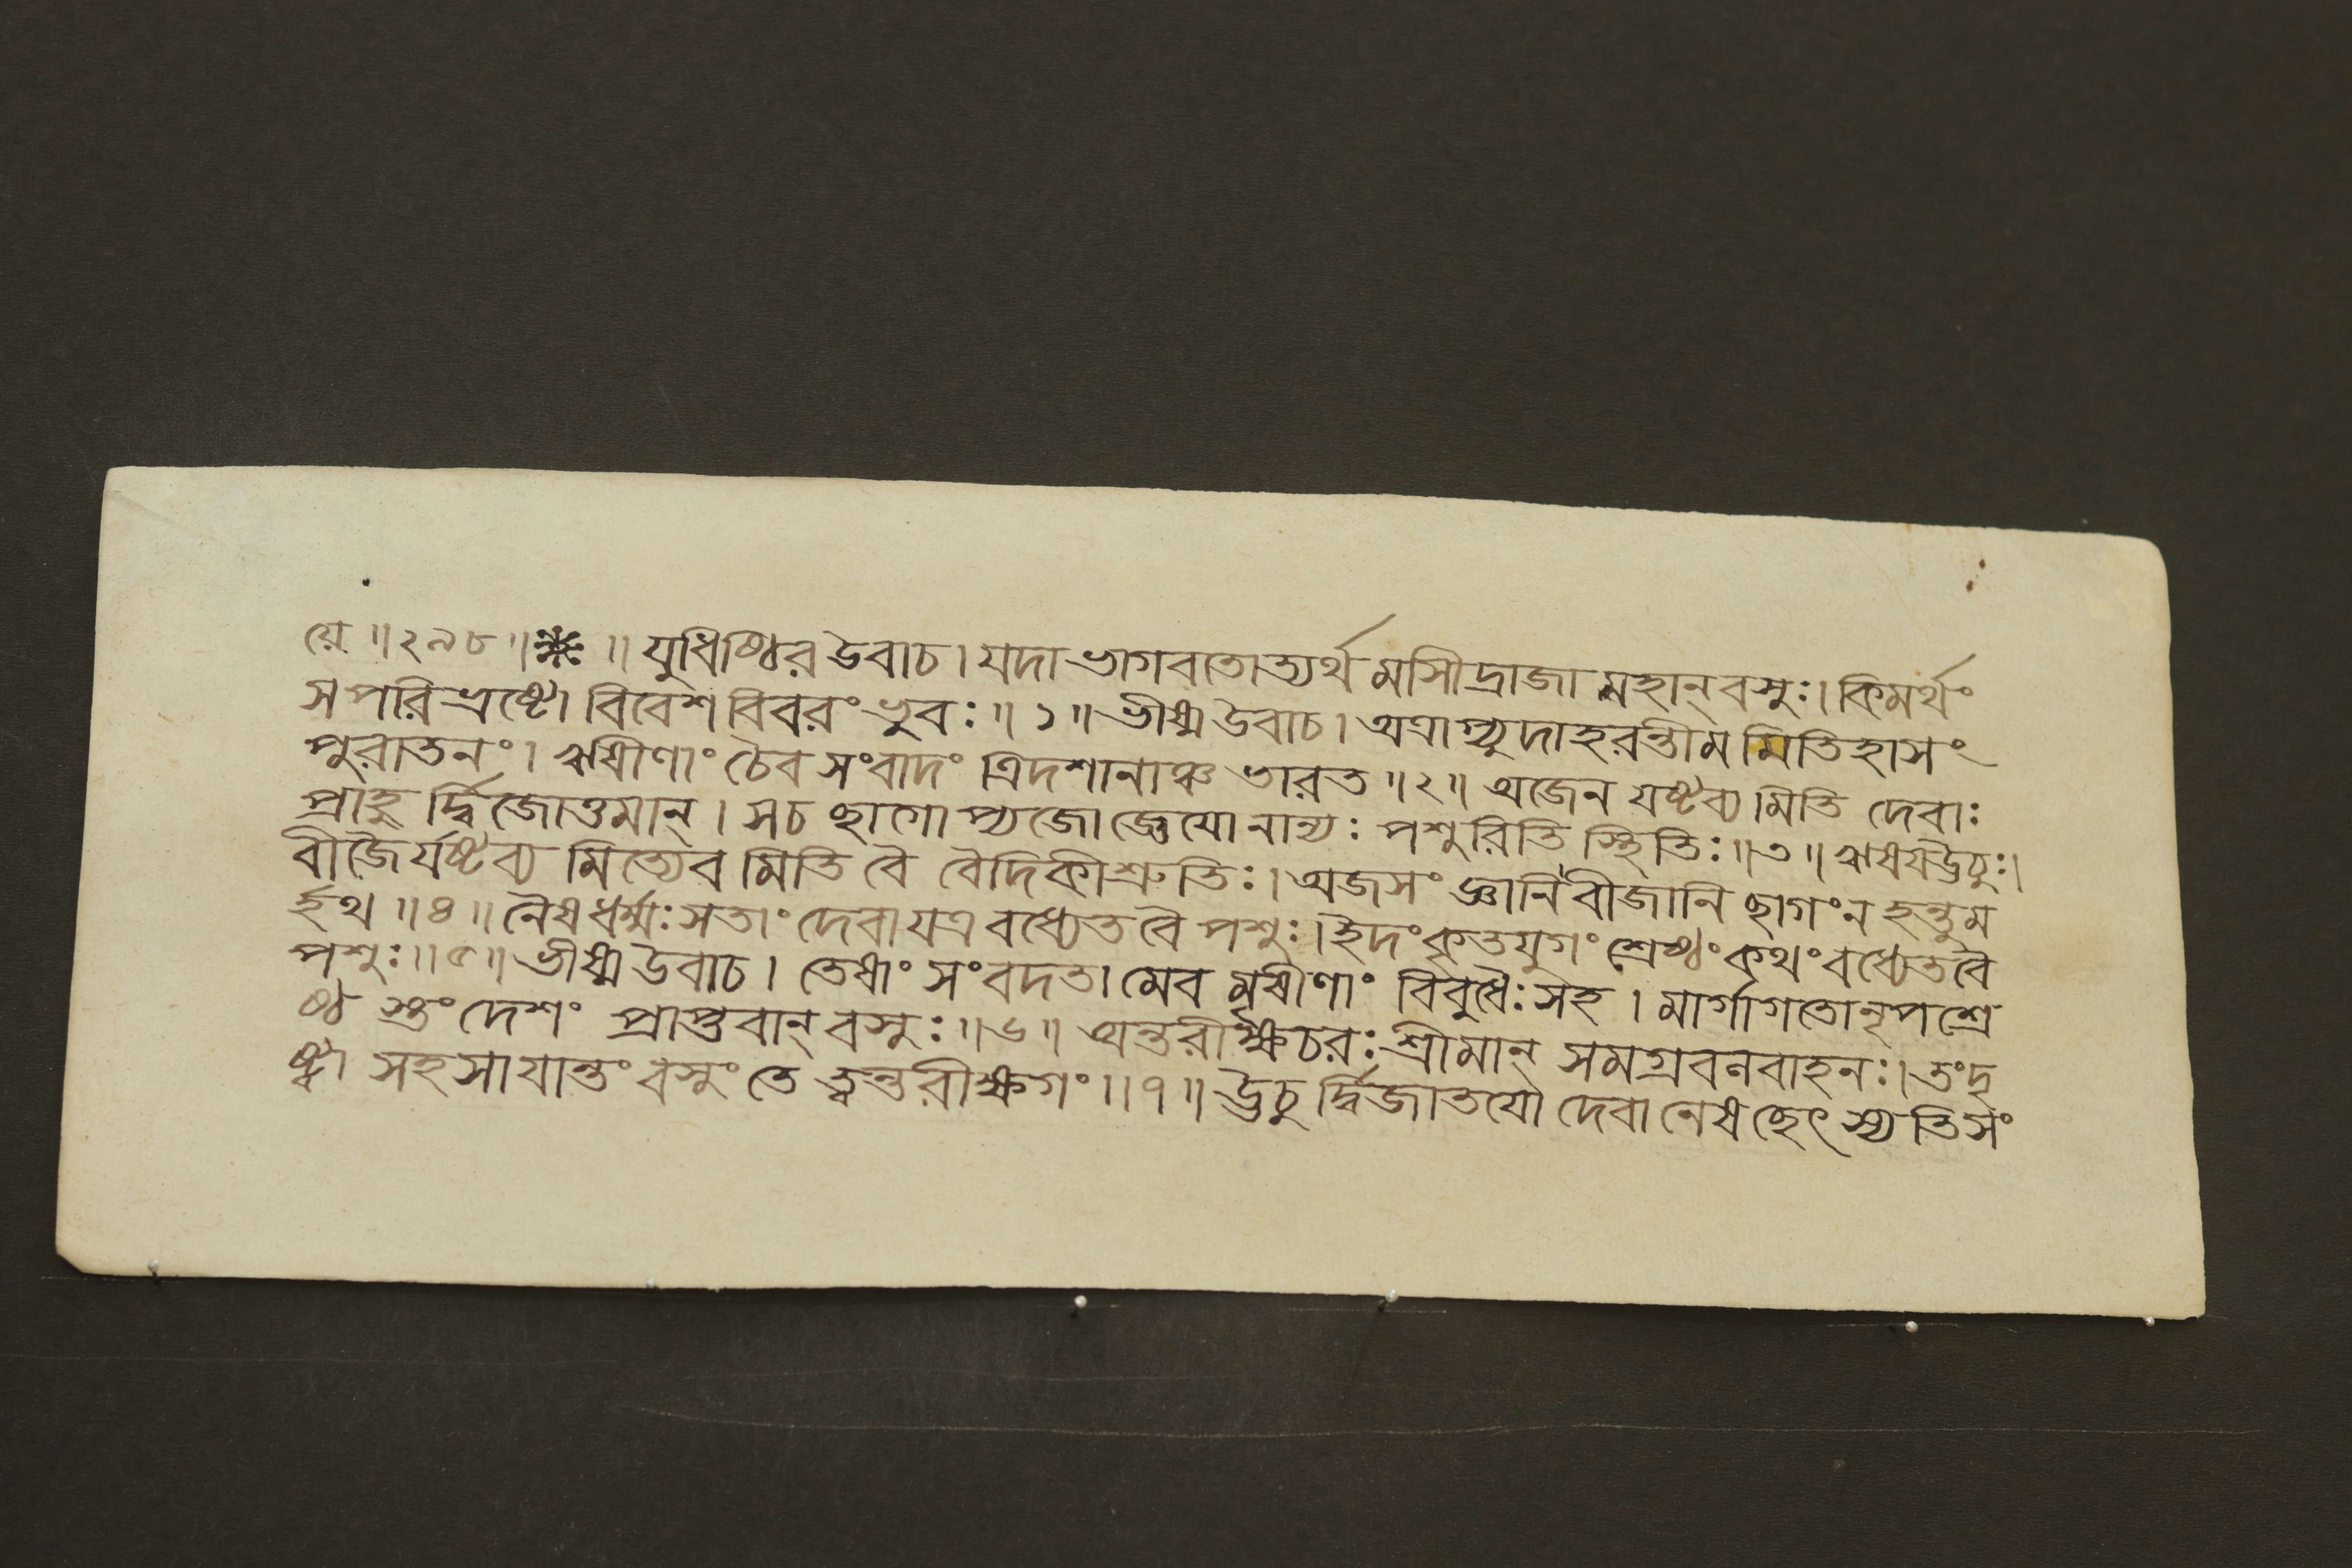 য়ে ॥ ২৯৮ ॥ ❋ ॥ যুধিষ্ঠির উবাচ । যদা ভাগবতোত্যর্থ মসীদ্রাজা মহান্ বসুঃ । কিমর্থং
স পরিভ্রষ্টো বিবেশ বিবরং ভুবঃ ॥ ১ ॥ ভীষ্ম উবাচ । অত্রাপ্যুদাহরন্তীম মিতিহাসং
পুরাতনং । ঋষীণাং চৈব সংবাদং ত্রিদশানাঞ্চ ভারত ॥ ২ ॥ অজেন যষ্টব্য মিতি দেবাঃ
প্রাহু র্দ্বিজোত্তমান্ । স চ ছাগো প্যজো জ্ঞেয়ো নান্যঃ পশুরিতি স্থিতিঃ ॥ ৩ ॥ ঋষয ঊচুঃ ।
বীজৈর্যষ্টব্য মিত্যেব মিতি বৈ বৈদিকী শ্রুতিঃ । অজসং জ্ঞানি বীজানি ছাগং ন হন্তুম
র্হথ ॥ ৪ ॥ নৈষ ধর্ম্মঃ সতাং দেবা যত্র বধ্যেত বৈ পশুঃ । ইদং কৃতযুগং শ্রেষ্ঠং কথং বধ্যেত বৈ
পশুঃ ॥ ৫ ॥ ভীষ্ম উবাচ । তেষাং সংবদতা মেব মৃষীণাং বিবুধৈঃ সহ । মার্গাগতো নৃপশ্রে
ষ্ঠ স্তং দেশং প্রাপ্তবান্ বসুঃ ॥ ৬ ॥ অন্তরীক্ষচরঃ শ্রীমান্ সমগ্রবলবাহনঃ । তং দৃ
ষ্ট্বা সহসা যান্তং বসুং তে ত্বন্তরীক্ষগং ॥ ৭ ॥ ঊচু র্দ্বিজাতযো দেবা নেষ চ্ছেৎস্যতি সং